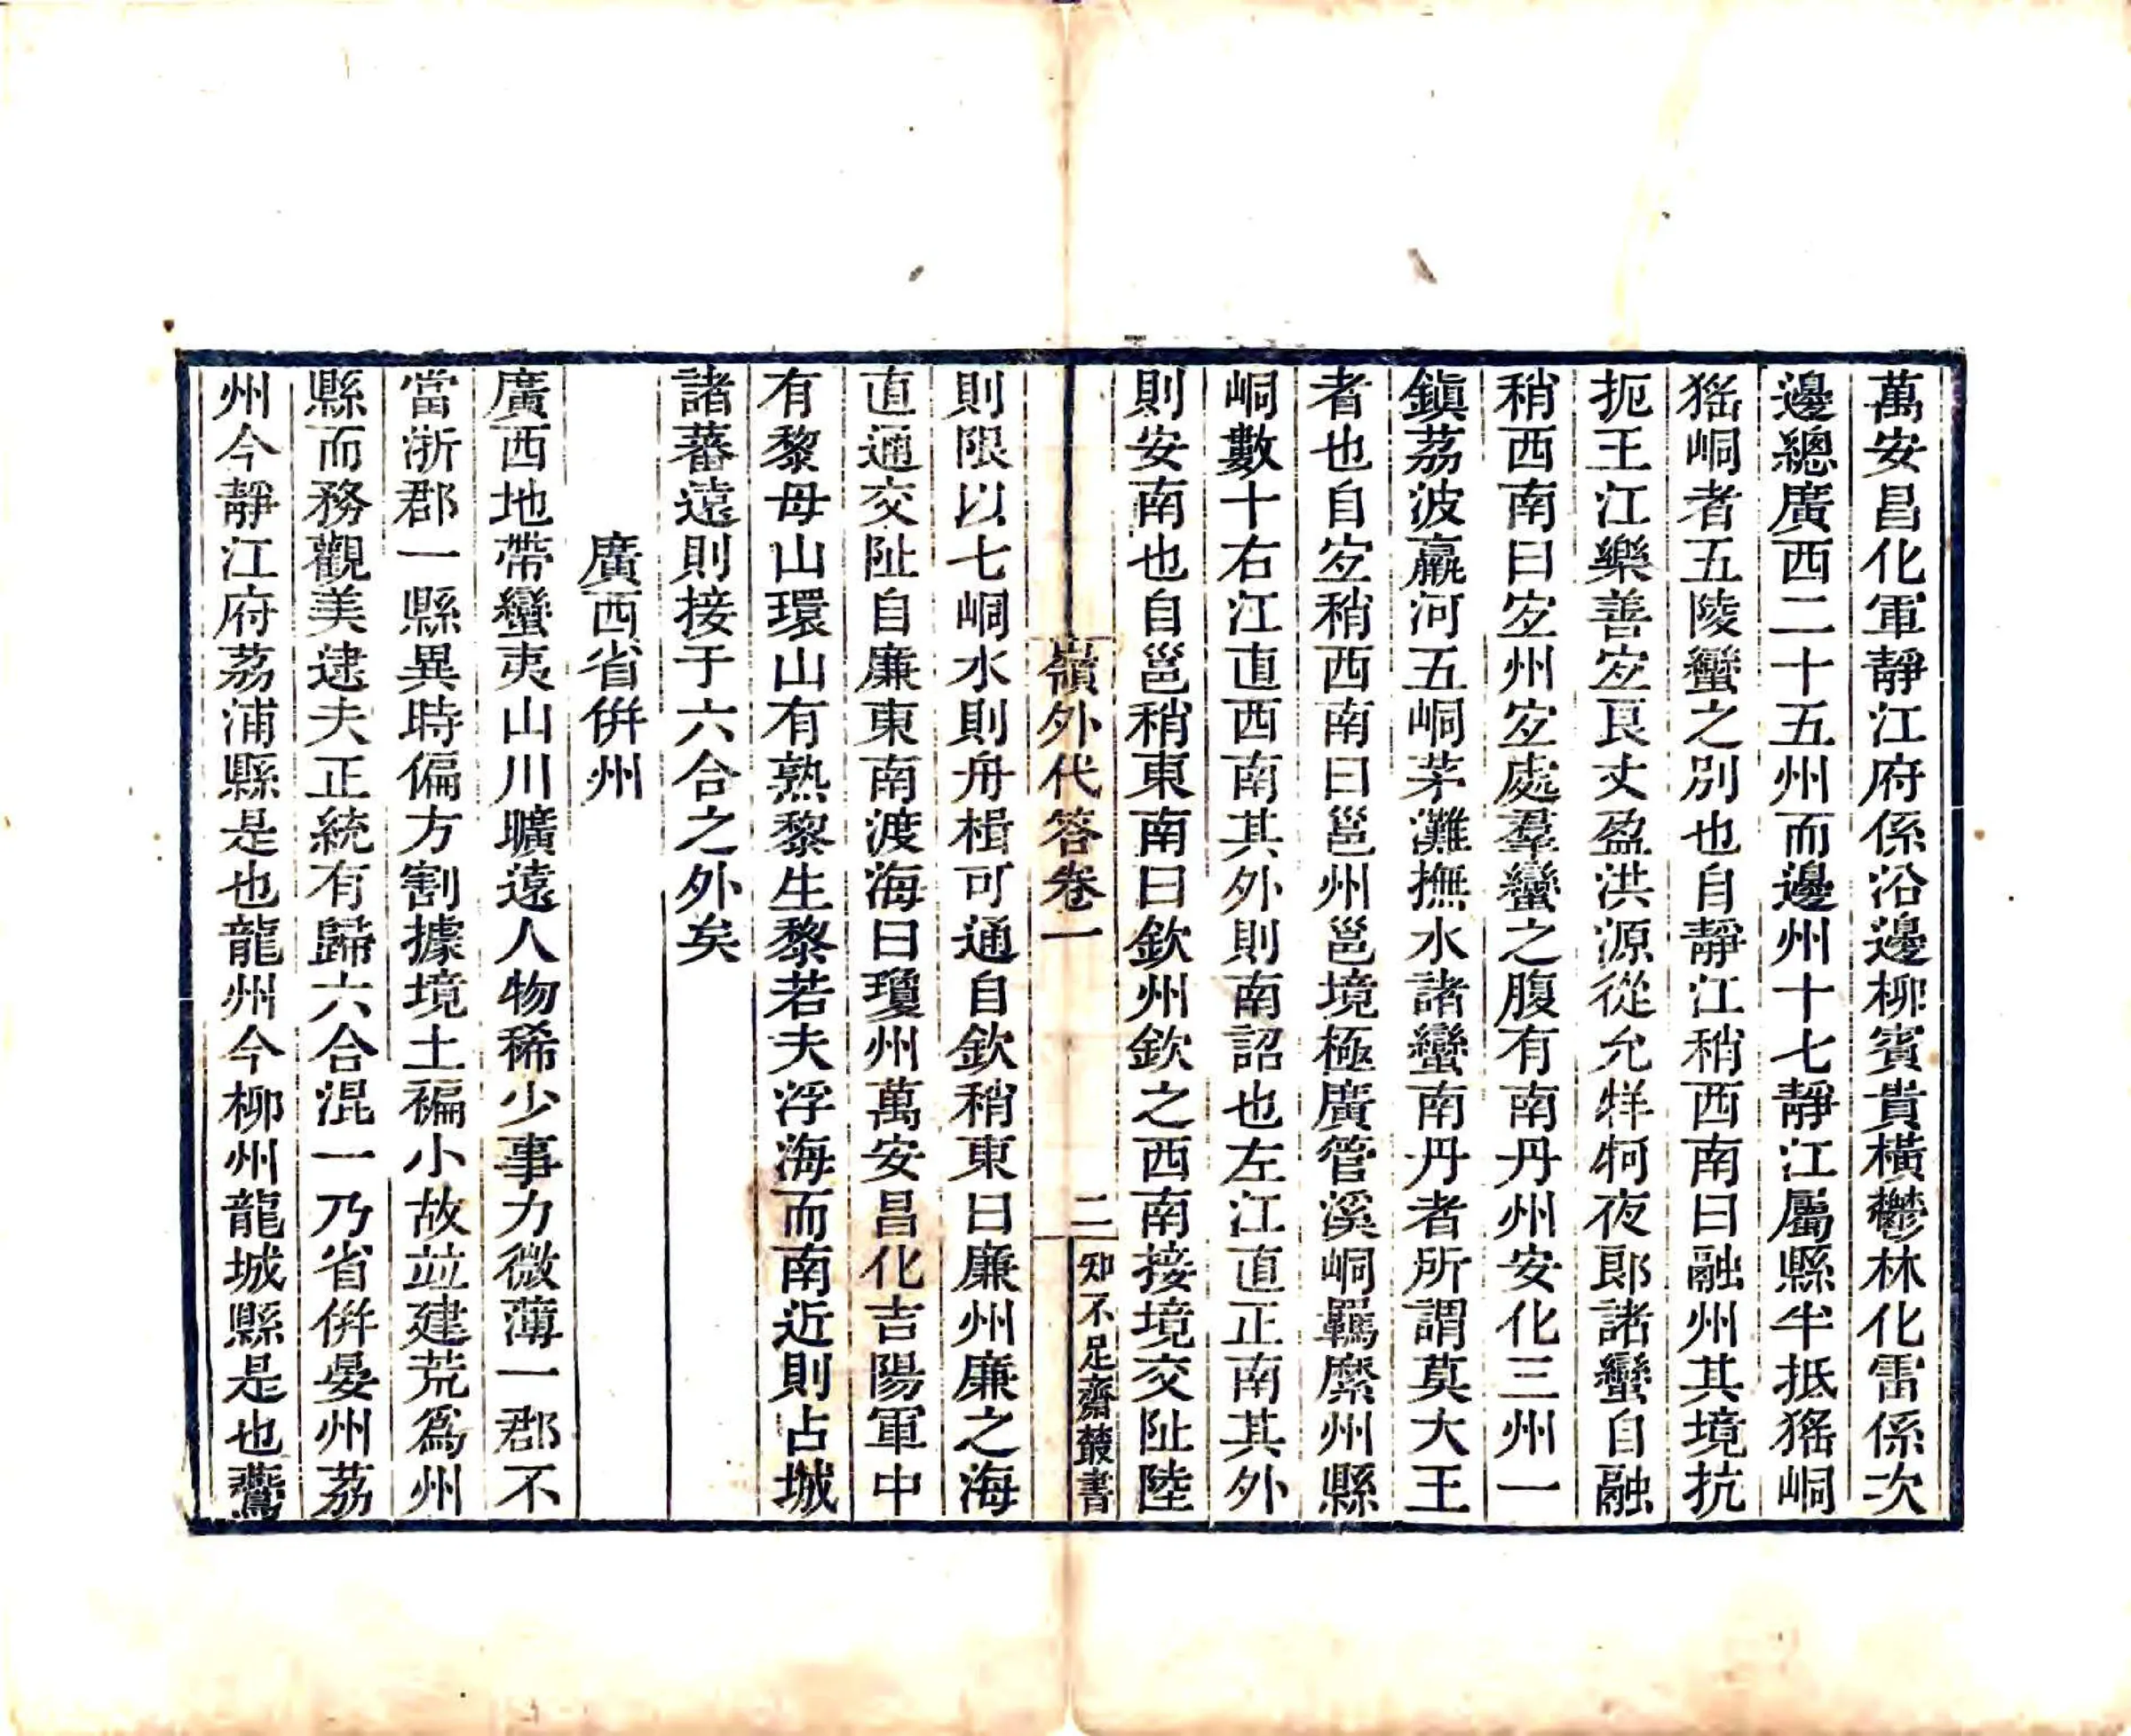 萬安昌化軍靜江府係沿邊柳賓貴橫鬱林化雷係次
邊總廣西二十五州而邊州十七靜江屬縣半抵猺峒
猺峒者五陵蠻之別也自靜江稍西南曰融州其境抗
扼王江樂善宐良丈盈洪源從允牂牁夜郞諸蠻自融
稍西南曰宐州宐處羣蠻之腹有南丹州安化三州一
鎭荔波臝河五峒茅灘撫水諸蠻南丹者所謂莫大王
者也自宐稍西南曰邕州邕境極廣管溪峒羈縻州縣
峒數十右江直西南其外則南詔也左江直正南其外
則安南也自邕稍東南曰欽州欽之西南接境交阯陸
嶺外代答卷一 二 知不足齋叢書
則限以七峒水則舟楫可通自欽稍東曰廉州廉之海
直通交阯自廉東南渡海曰瓊州萬安昌化吉陽軍中
有黎母山環山有熟黎生黎若夫浮海而南近則占城
諸蕃遠則接于六合之外矣
廣西省倂州
廣西地帶蠻夷山川曠遠人物稀少事力微薄一郡不
當浙郡一縣異時偏方割據境土褊小故竝建荒爲州
縣而務觀美逮夫正統有歸六合混一乃省倂晏州荔
州今靜江府荔浦縣是也龍州今柳州龍城縣是也鷰